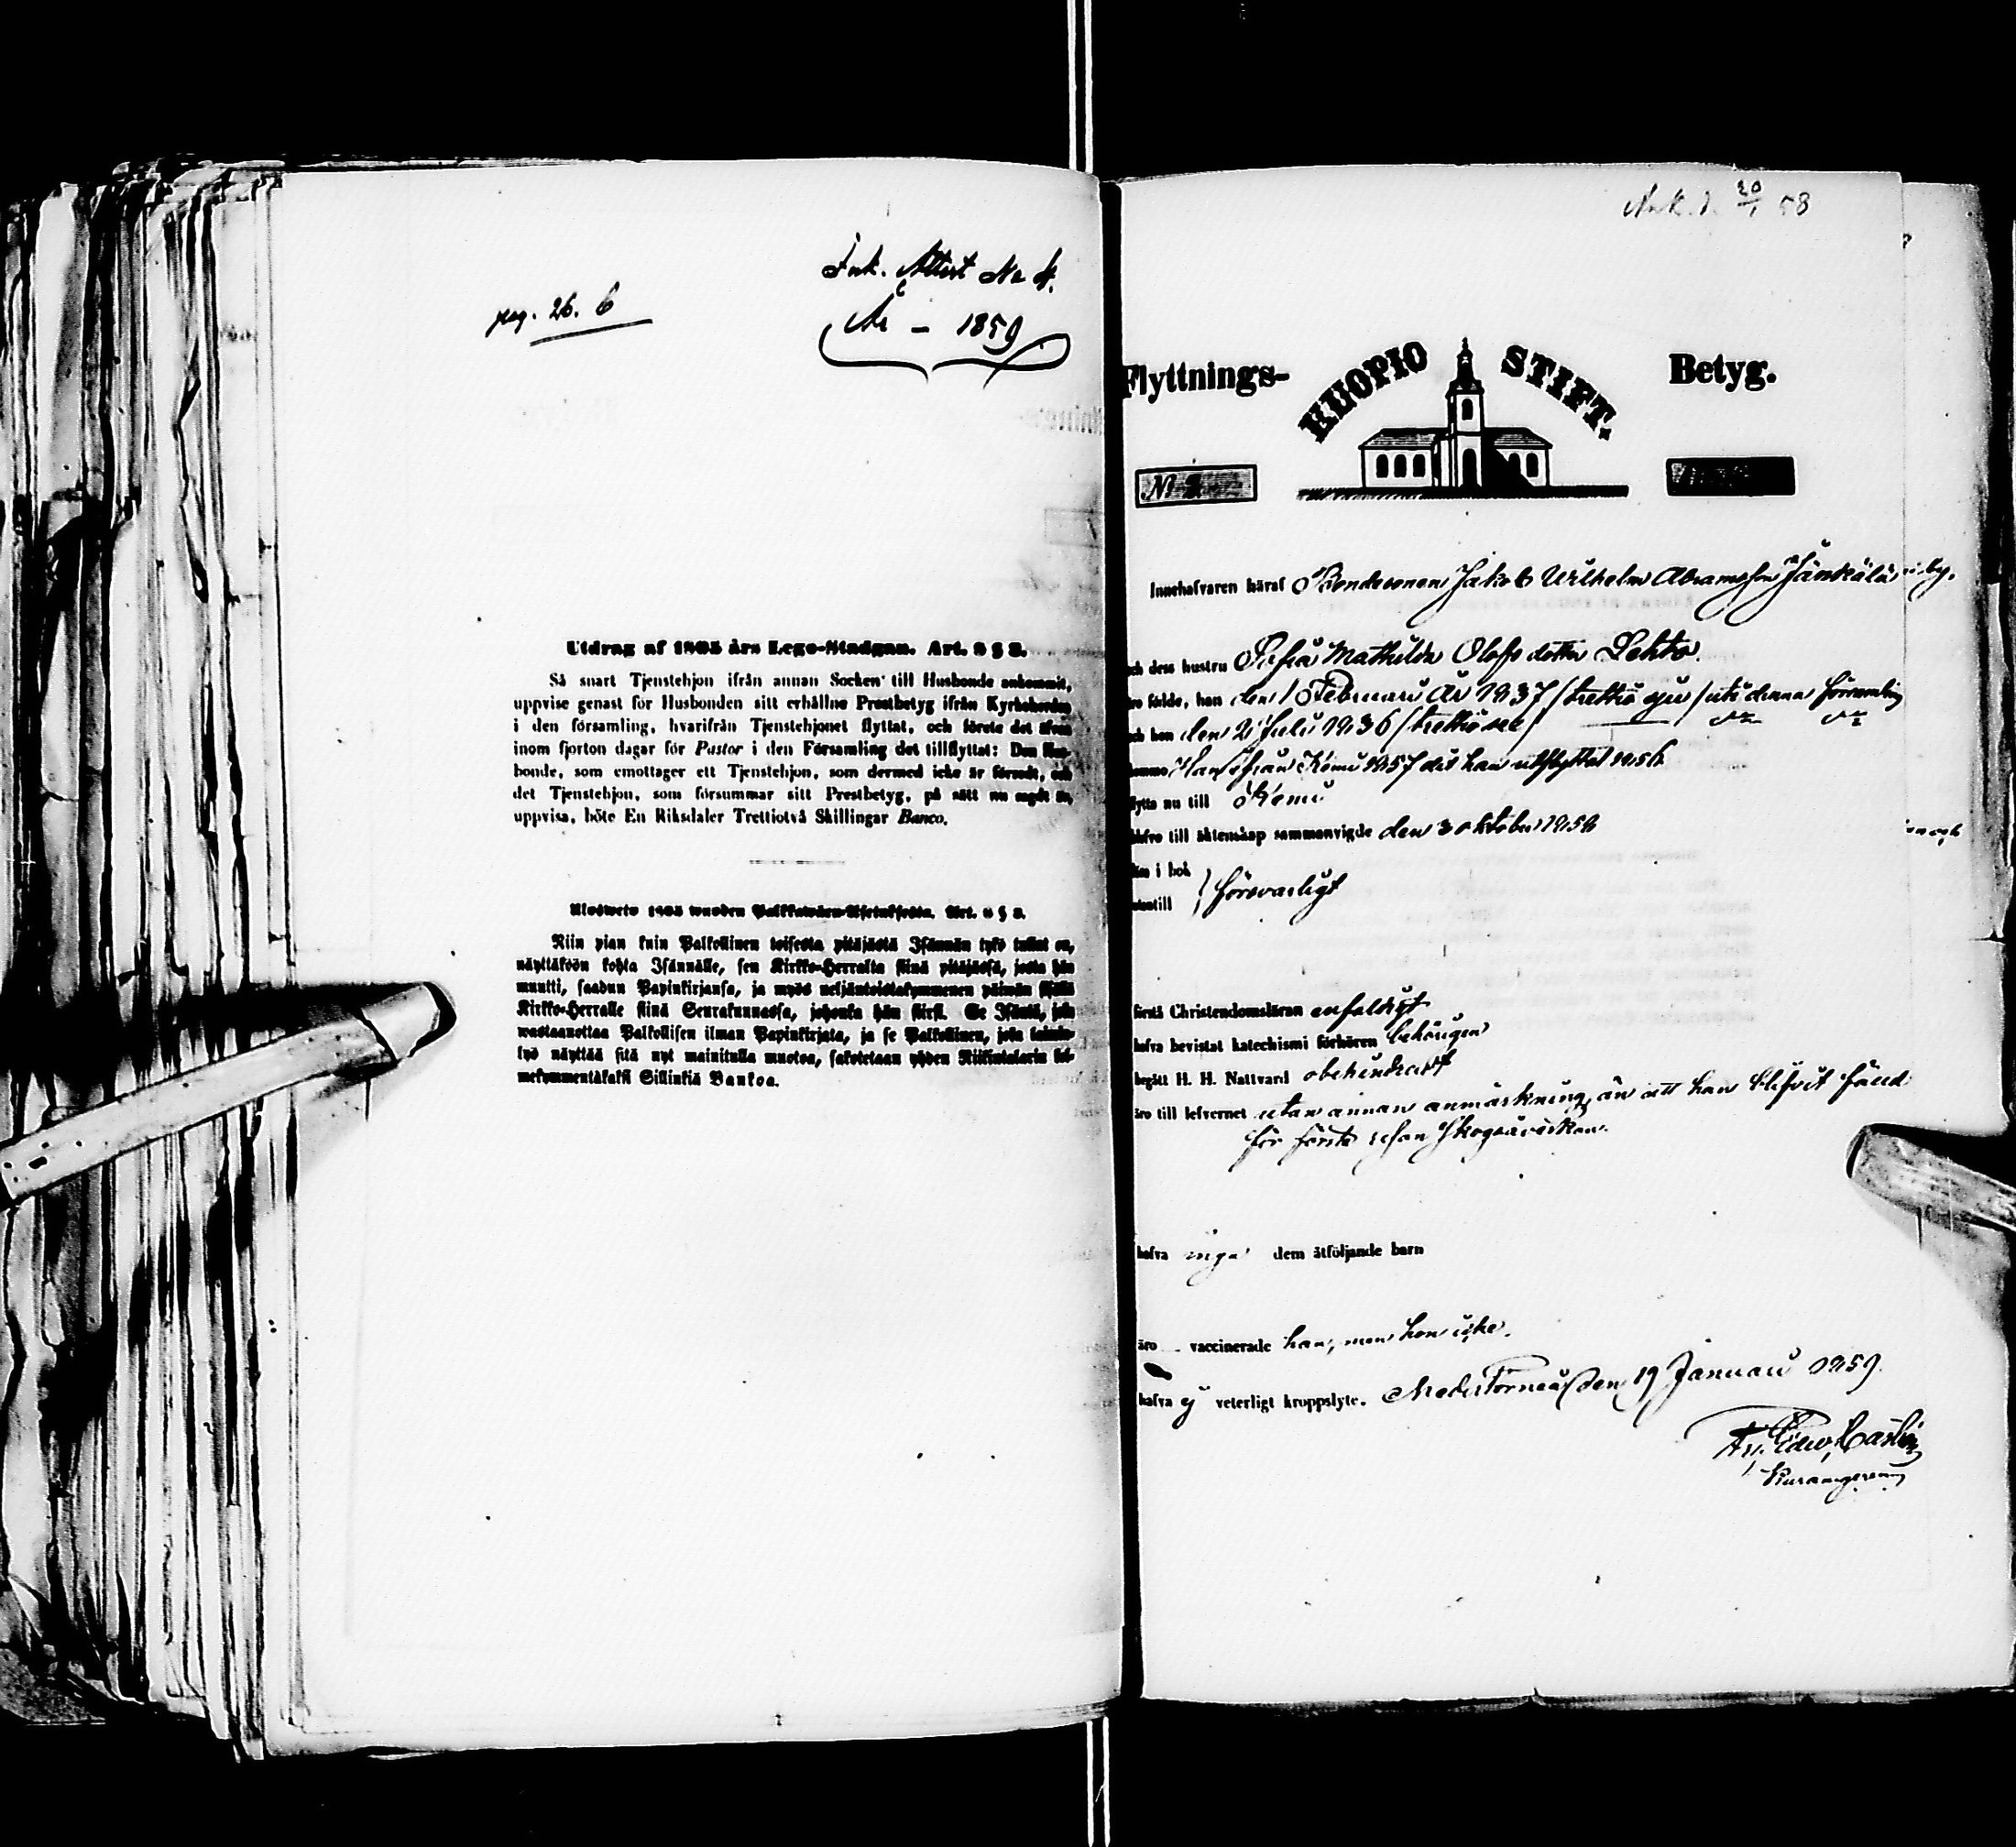 Ink. Attest No 4.
pag. 26. 6
År - 1859
Utdrag af 1805 års Lego-Stadgan. Art. 8 § 3.
Så snart Tjenstehjon ifrån annan Socken till Husbonde ankommit,
uppvise genast för Husbonden sitt erhållne Prestbetyg ifrån Kyrkoherden
i den församling, hvarifrån Tjenstehjonet flyttat, och förete det äfven
inom fjorton dagar för Pastor i den Församling det tillflyttat: Den Hus-
bonde, som emottager ett Tjenstehjon, som dermed icke är försedt, och
det Tjenstehjon, som försummar sitt Prestbetyg, på sätt nu sagdt är,
uppvisa, böte En Riksdaler Trettiotvå Skillingar Banco.
Ulosweto 1805 wuoden Palkkawäen-Asetuksesta. Art. 8 § 3.
Niin pian kuin Palkollinen toisesta pitäjästä Isännän tykö tullut on,
näyttäköön kohta Isännälle, sen Kirkko-Herralta siinä pitäjässä, josta hän
muutti, saadun Papinkirjansa, ja myös neljäntoistakymmenen päiwän sisällä
Kirkko-Herralle siinä Seurakunnassa, johonka hän siirsi. Se Isäntä, joka
wastaanottaa Palkollisen ilman Papinkirjata, ja se Palkollinen, joka laimin-
lyö näyttää sitä nyt mainitulla muotoa, sakotetaan yhden Riikintalarin kol-
mekymmentäkaksi Sillinkiä Bankoa.
Ank. d. 20/1 58
Flyttnings- KUOPIO STIFT. Betyg.
No
Innehafvaren häraf Bondesonen Jakob Wilhelm Abramsson Jänkälä by.
och dess hustru Sofia Mathilda Olofs dotter Lehto.
äro födde, han den 1 Februari År 1837 / trettio sju / uti denna församling
och hon den 2 Juli 1836 / trettio sex /
komne Han ifrån Kemi 1857 dit han utflyttat 1856
flytta nu till Kemi
blefvo till äktenskap sammanvigde den 3 oktober 1858
läsa i bok
utantill } försvarligt
förstå Christendomsläran enfaldigt
hafva bevistat katechismi förhören behörigen
begått H. H. Nattvard obehindradt
äro till lefvernet utan annan anmärkning, än att han blifvit fäld
för första resan Skogsåverkan.
hafva inga dem åtföljande barn
äro vaccinerade han, men hon icke.
hafva ej veterligt kroppslyte. Neder Torneå den 19 Januari 1859.